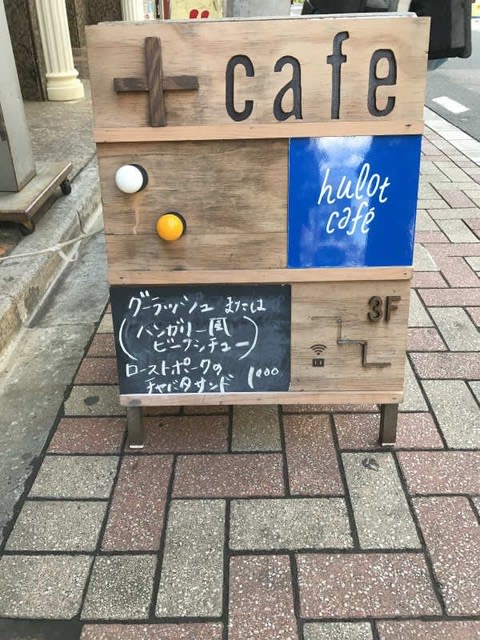 + cafe
hulot
café
グーラッシュ または
(ハンガリー風
ビーフシチュー)
ローストポークの
チャバタサンド 1000
3F